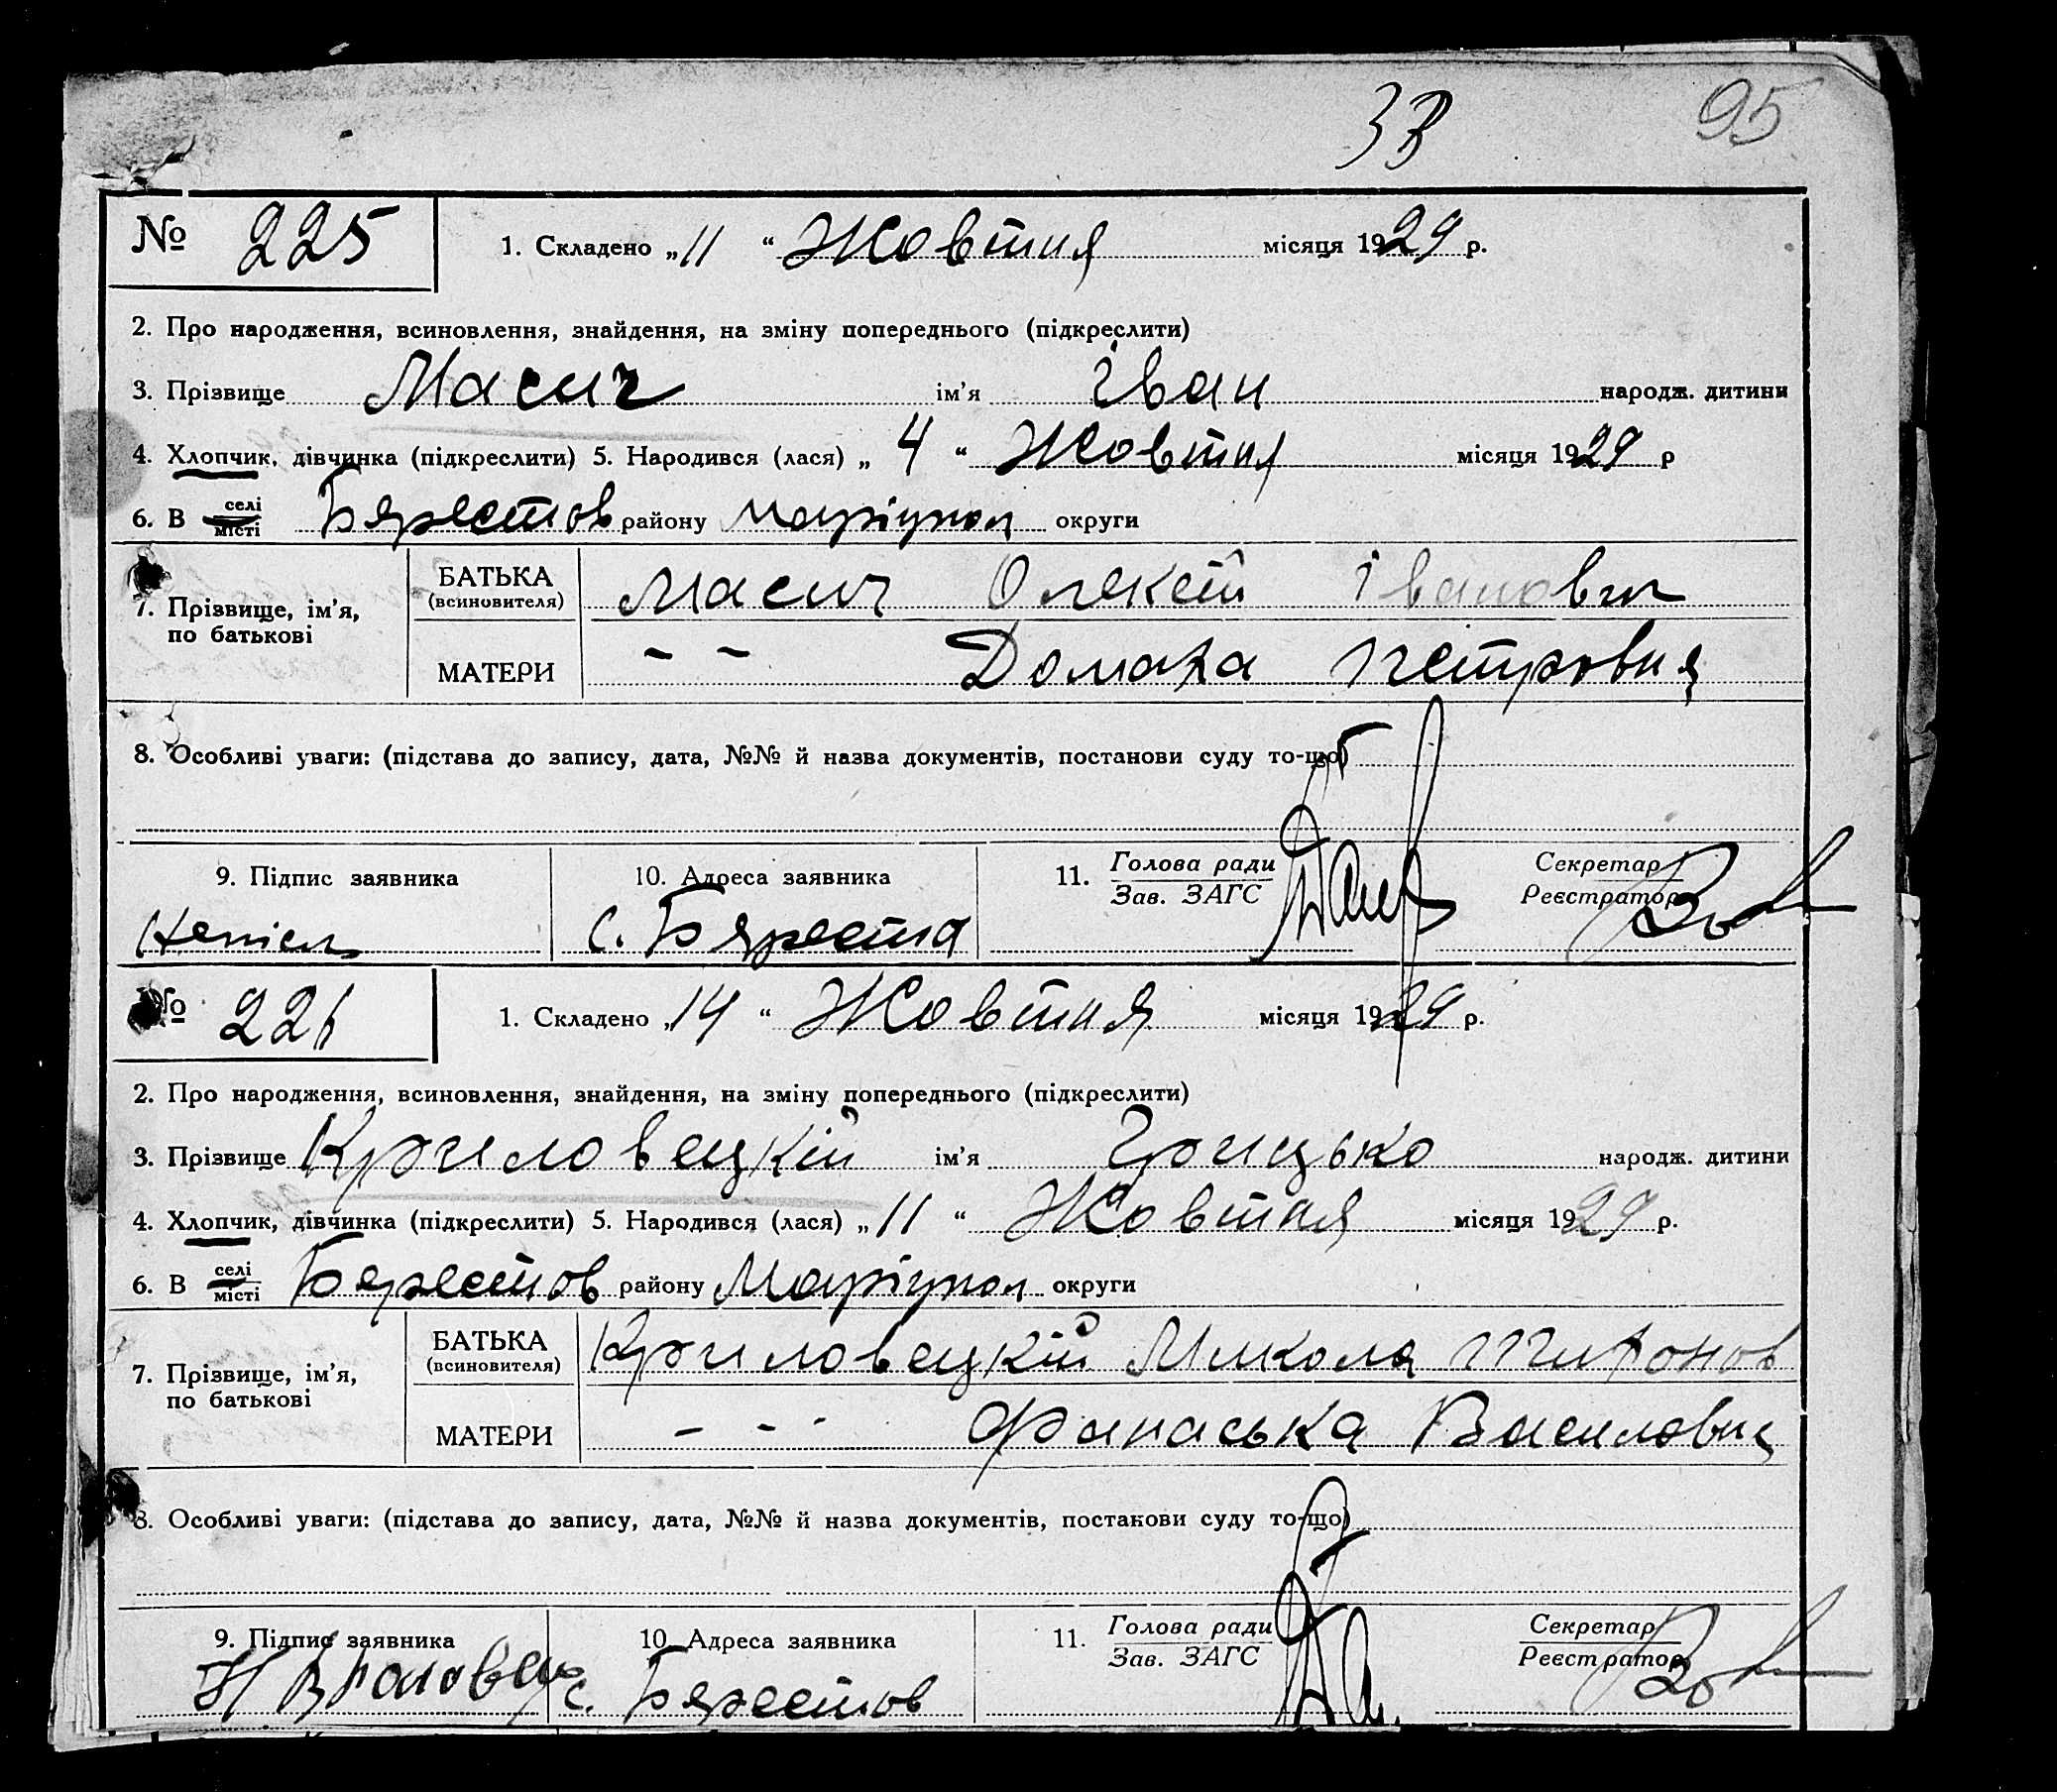 ЗВ 95
№ 225 1. Складено „11“ Жовтня місяця 1929 р.
2. Про народження, всиновлення, знайдення, на зміну попереднього (підкреслити)
3. Прізвище Масич ім’я Іван народж. дитини
4. Хлопчик, дівчинка (підкреслити) 5. Народився (лася) „4“ Жовтня місяця 1929 р
6. В селі місті Бярестов району Маріупол округи
7. Прізвище, ім’я, по батькові
БАТЬКА (всиновителя) Масич Олексій Іванович
МАТЕРИ - - Домаха Петровня
8. Особливі уваги: (підстава до запису, дата, №№ й назва документів, постанови суду то-що)
9. Підпис заявника 10. Адреса заявника 11. Голова ради Зав. ЗАГС Секретар Реєстратор
с. Бяреста
№ 226 1. Складено „14“ Жовтня місяця 1929 р.
2. Про народження, всиновлення, знайдення, на зміну попереднього (підкреслити)
3. Прізвище Криловецкій ім’я Грицько народж. дитини
4. Хлопчик, дівчинка (підкреслити) 5. Народився (лася) „11“ Жовтня місяця 1929 р.
6. В селі місті Бярестов району Маріупол округи
7. Прізвище, ім’я, по батькові
БАТЬКА (всиновителя) Криловецкій Микола Тихонов
МАТЕРИ - - - Фанаська Василовна
8. Особливі уваги: (підстава до запису, дата, №№ й назва документів, постанови суду то-що)
9. Підпис заявника 10. Адреса заявника 11. Голова ради Зав. ЗАГС Секретар Реєстратор
с. Бярестов